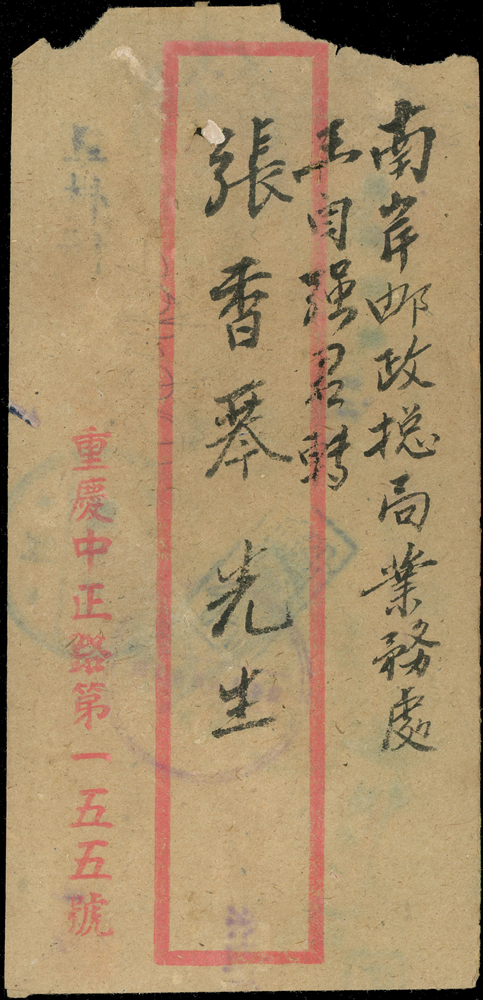 南岸邮政捴局業務處
王自强君轉
張香琴 先生
重慶中正路第一五五號